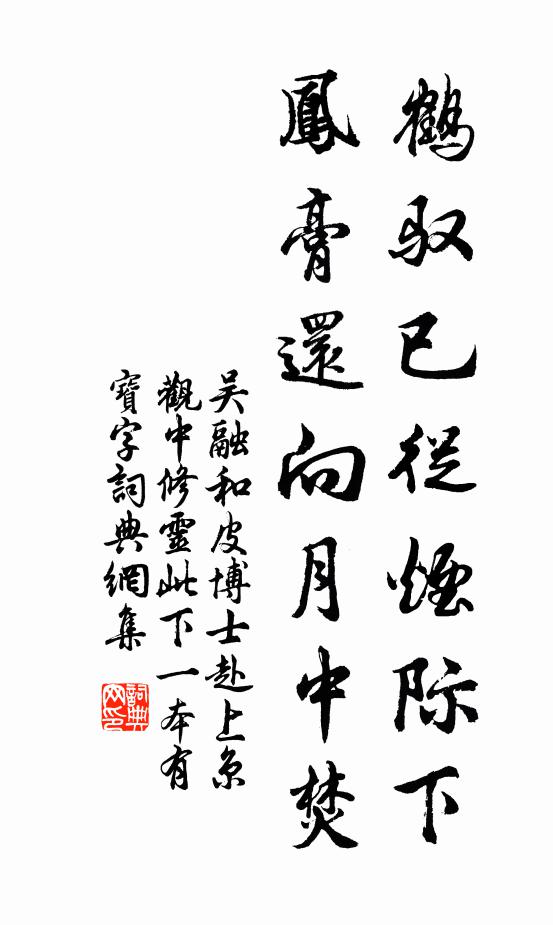 鹤驭已從煙际下
鳳膏還向月中焚
吴融和皮博士赴上京
觀中修靈此下一本有
寶字詞典網集
詞典网印